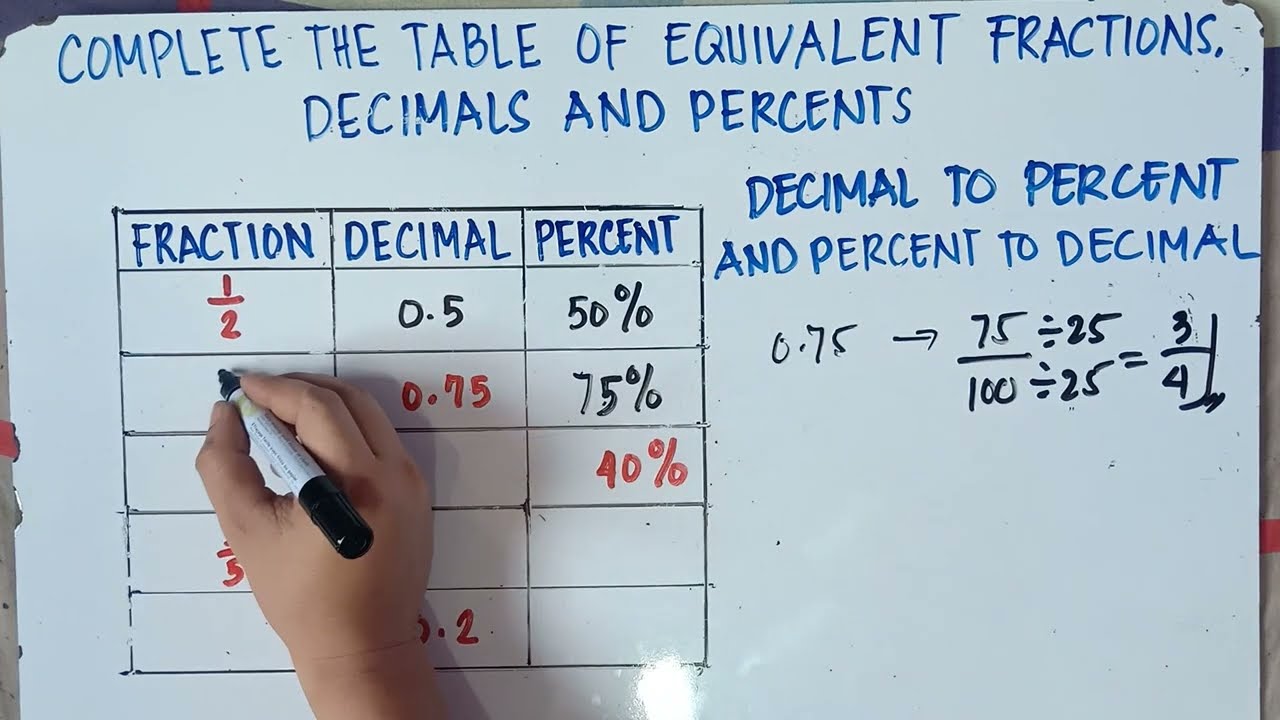 COMPLETE THE TABLE OF EQUIVALENT FRACTIONS,
DECIMALS AND PERCENTS
DECIMAL TO PERCENT
AND PERCENT TO DECIMAL
FRACTION DECIMAL PERCENT
1/2 0.5 50%
0.75 75%
40%
5
.2
0.75 → 75/100 ÷25/÷25 = 3/4